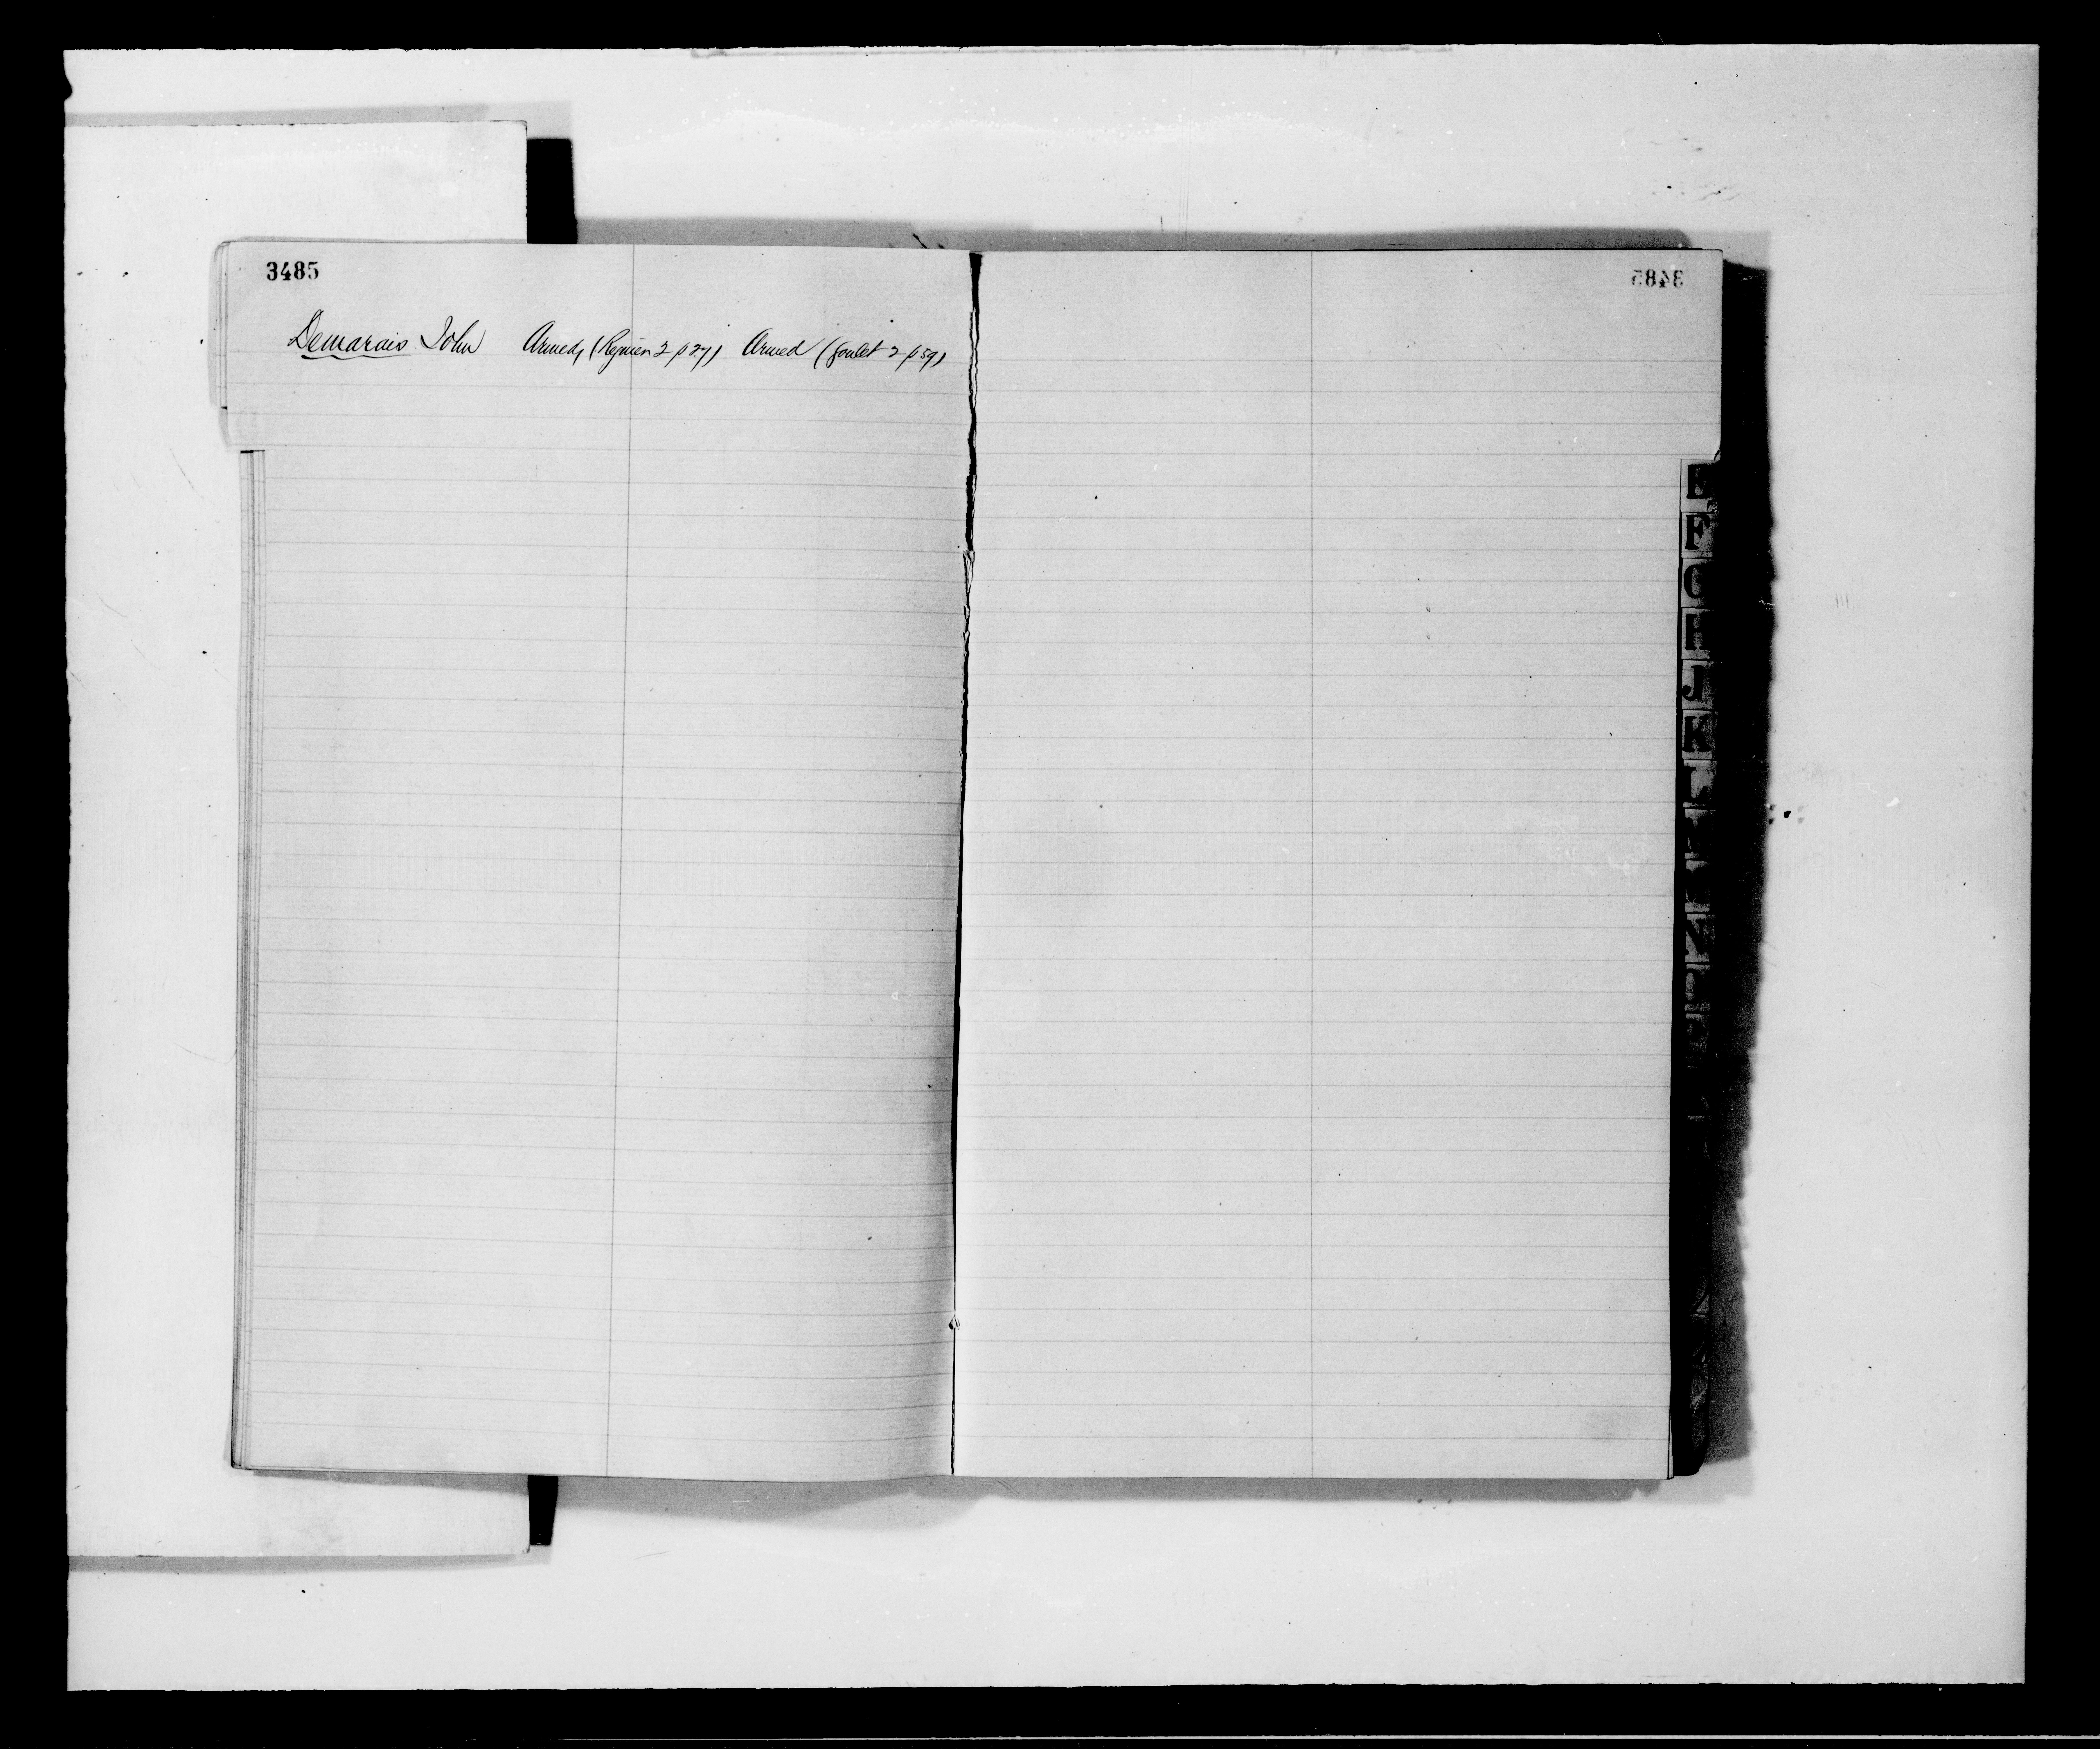 3485
Demarais John Armed, (Regnier 2 p 27) Armed (Goulet 2 p 59)
3485
E
F
G
H
J
K
L